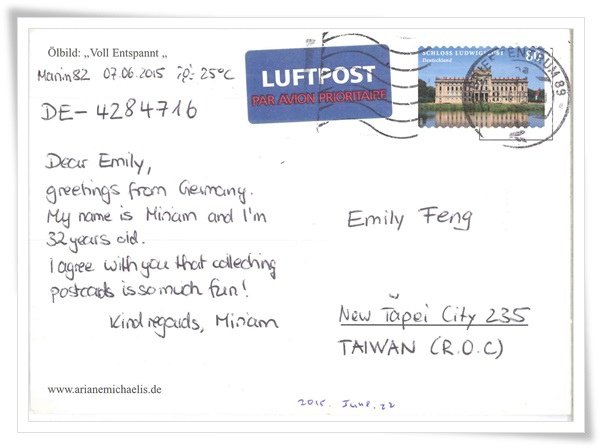 Ölbild: „Voll Entspannt „
Marin82 07.06.2015 25°C
DE-4284716
LUFTPOST
PAR AVION PRIORITAIRE
SCHLOSS LUDWIGSLUST
Deutschland
89
Dear Emily,
greetings from Germany.
My name is Miriam and I'm
32 years old.
I agree with you that collecting
postcards is so much fun!
Kind regards, Miriam
Emily Feng
New Tapei City 235
TAIWAN (R.O.C)
www.arianemichaelis.de
2015. June. 22